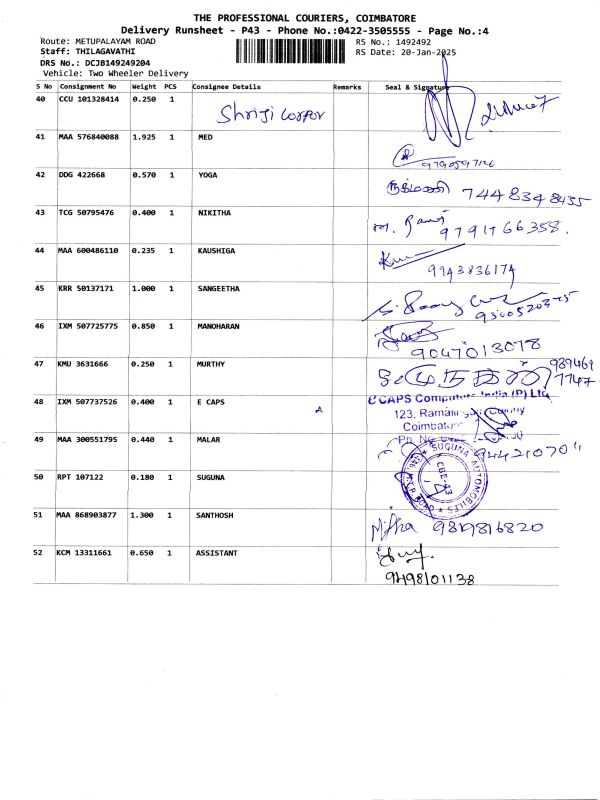 THE PROFESSIONAL COURIERS, COIMBATORE
Delivery Runsheet - P43 - Phone No.:0422-3505555 - Page No.:4
Route: METUPALAYAM ROAD RS No.: 1492492
Staff: THILAGAVATHI RS Date: 20-Jan-2025
DRS No.: DCJB149249204
Vehicle: Two Wheeler Delivery
S No Consignment No Weight PCS Consignee Details Remarks Seal & Signature
40 CCU 101328414 0.250 1 Shriji
41 MAA 576840088 1.925 1 MED
9790597126
42 DDG 422668 0.570 1 YOGA
7448348455
43 TCG 50795476 0.400 1 NIKITHA M. Rani
9791766358.
44 MAA 600486110 0.235 1 KAUSHIGA
9943836174
45 KRR 50137171 1.000 1 SANGEETHA
46 IXM 507725775 0.850 1 MANOHARAN
9047013078
47 KMU 3631666 0.250 1 MURTHY 989469
7747
48 IXM 507737526 0.400 1 E CAPS E CAPS Computers India (P) Ltd
123, Ramalinga Colony
Coimbatore
Ph. No
49 MAA 300551795 0.440 1 MALAR
50 RPT 107122 0.180 1 SUGUNA SUGUNA AUTOMOBILES
CBE-43
51 MAA 868903877 1.300 1 SANTHOSH 9819816820
52 KCM 13311661 0.650 1 ASSISTANT
9498101138